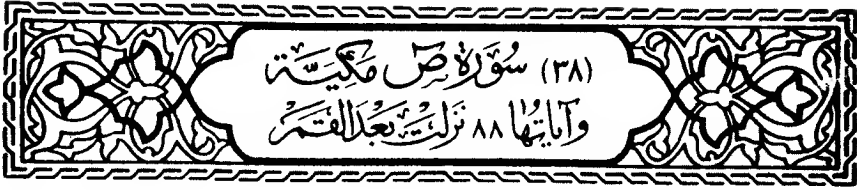 (٣٨) سُورَة صٓ مَكِيَّة
وَآيَاتُهَا ٨٨ نَزَلَتْ بَعْدَ القَمَر